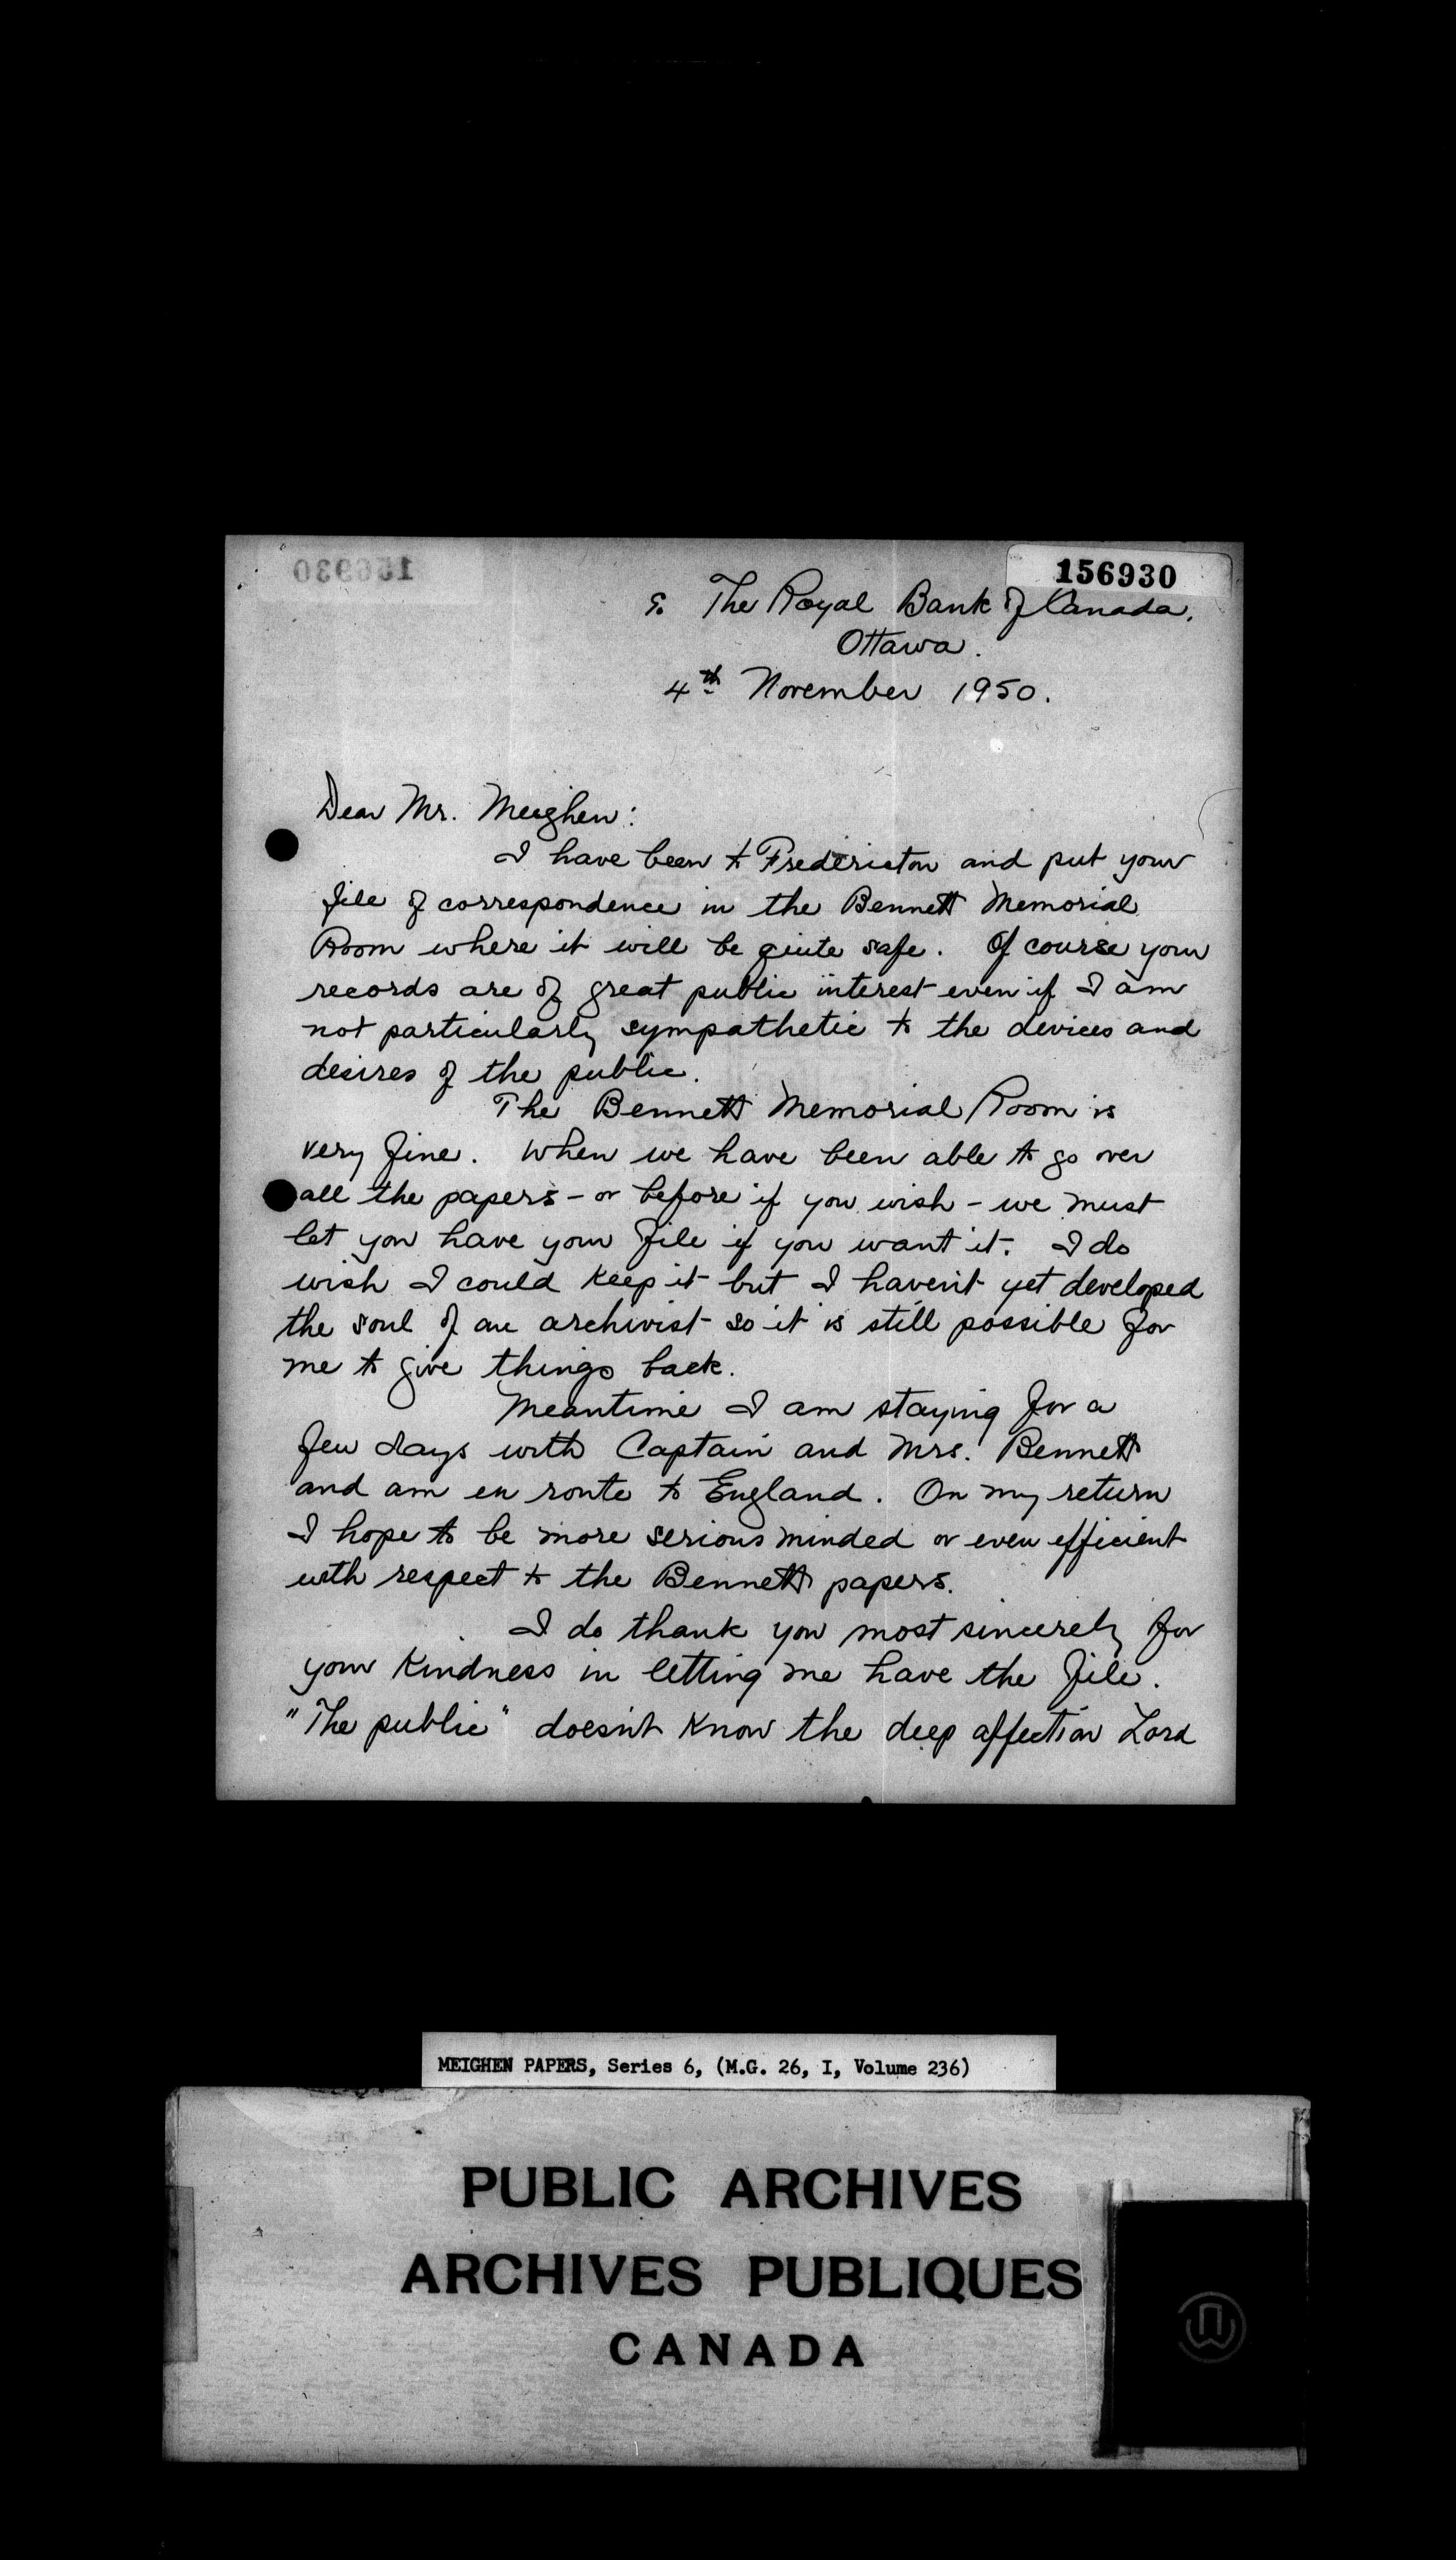 156930
℅ The Royal Bank of Canada,
Ottawa.
4th November 1950.
Dear Mr. Meighen:
I have been to Fredericton and put your
file of correspondence in the Bennett Memorial
Room where it will be quite safe. Of course your
records are of great public interest even if I am
not particularly sympathetic to the devices and
desires of the public.
The Bennett Memorial Room is
very fine. When we have been able to go over
all the papers - or before if you wish - we must
let you have your file if you want it. I do
wish I could keep it but I haven't yet developed
the soul of an archivist so it is still possible for
me to give things back.
Meantime I am staying for a
few days with Captain and Mrs. Bennett
and am en route to England. On my return
I hope to be more serious minded or even efficient
with respect to the Bennett papers.
I do thank you most sincerely for
your kindness in letting me have the file.
"The public" doesn't know the deep affection Lord
MEIGHEN PAPERS, Series 6, (M.G. 26, I, Volume 236)
PUBLIC ARCHIVES
ARCHIVES PUBLIQUES
CANADA